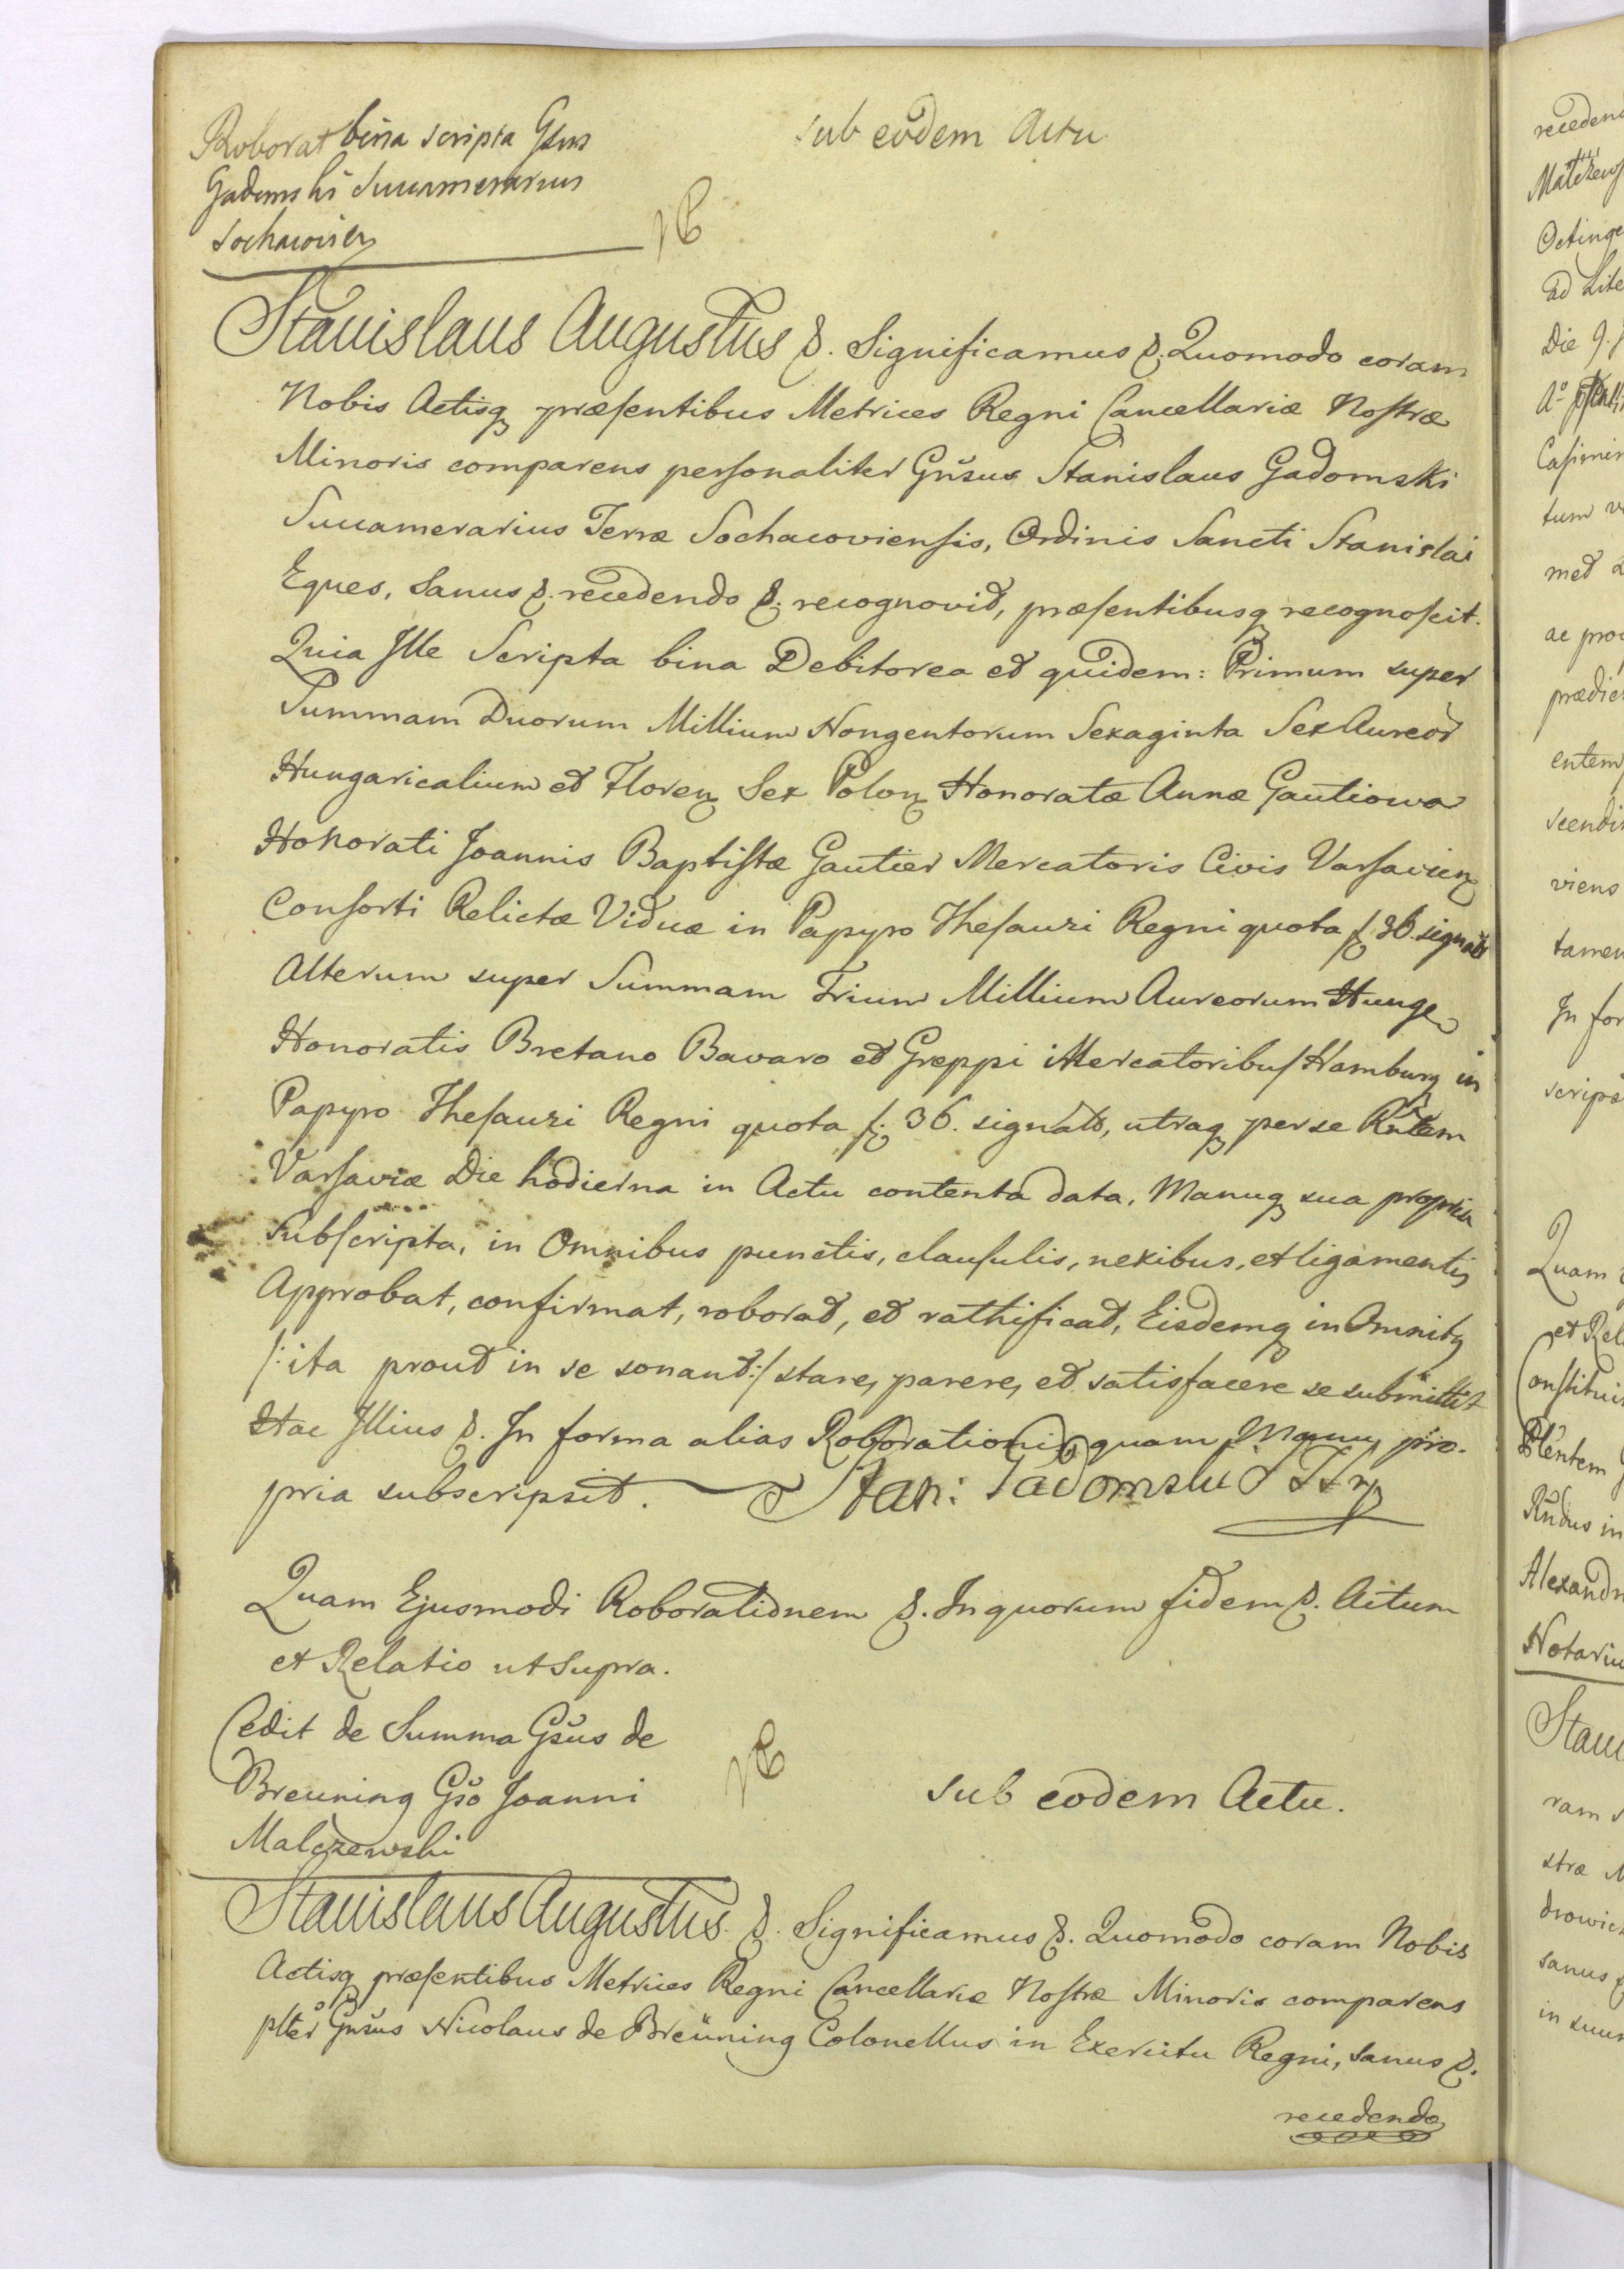 Roborat bina scripta Gsus
Gadomski Succamerarius
Sochacovien
sub eodem Actu
Stanislaus Augustus &. Significamus &. Quomodo coram
Nobis Actisq præsentibus Metrices Regni Cancellariæ Nostræ
Minoris comparens personaliter Gnsus Stanislaus Gadomski
Succamerarius Terræ Sochacoviensis, Ordinis Sancti Stanislai
Eques, Sanus &. recedendo &. recognovit, præsentibusq recognoscit.
Quia Ille Scripta bina Debitorea et quidem: Primum super
Summam Duorum Millium Nongentorum Sexaginta Sex Aureor
Hungaricalium et Floren Sex Polon Honoratæ Annæ Gautiowa
Honorati Joannis Baptistæ Gautier Mercatoris Civis Varsavien
Consorti Relictæ Viduæ in Papyro Thesauri Regni quota f. 36. signato
Alterum super Summam Trium Millium Aureorum Hunge
Honoratis Bretano Bavaro et Greppi Mercatoribus Hamburg in
Papyro Thesauri Regni quota f. 36. signato, utraq per se Rntem
Varsaviæ Die hodierna in Actu contenta data, Manuq sua propria
Subscripta, in Omnibus punctis, clausulis, nexibus, et ligamentis
Approbat, confirmat, roborat, et rathificat, Eisdemq in Omnibq
/: ita prout in se sonant :/ stare, parere, et satisfacere se submittit
Hac Illius &. In forma alias Roborationis quam Manu pro-
pria subscripsit. Stan: Gadomski
Quam Ejusmodi Roborationem &. In quorum fidem &. Actum
et Relatio ut Supra.
Cedit de Summa Gsus de
Breuning Gso Joanni
Malczewski
sub eodem Actu.
Stanislaus Augustus &. Significamus &. Quomodo coram Nobis
Actisq præsentibus Metrices Regni Cancellariæ Nostræ Minoris comparens
plter Gnsus Nicolaus de Breüning Colonellus in Exercitu Regni, sanus &.
recedendo